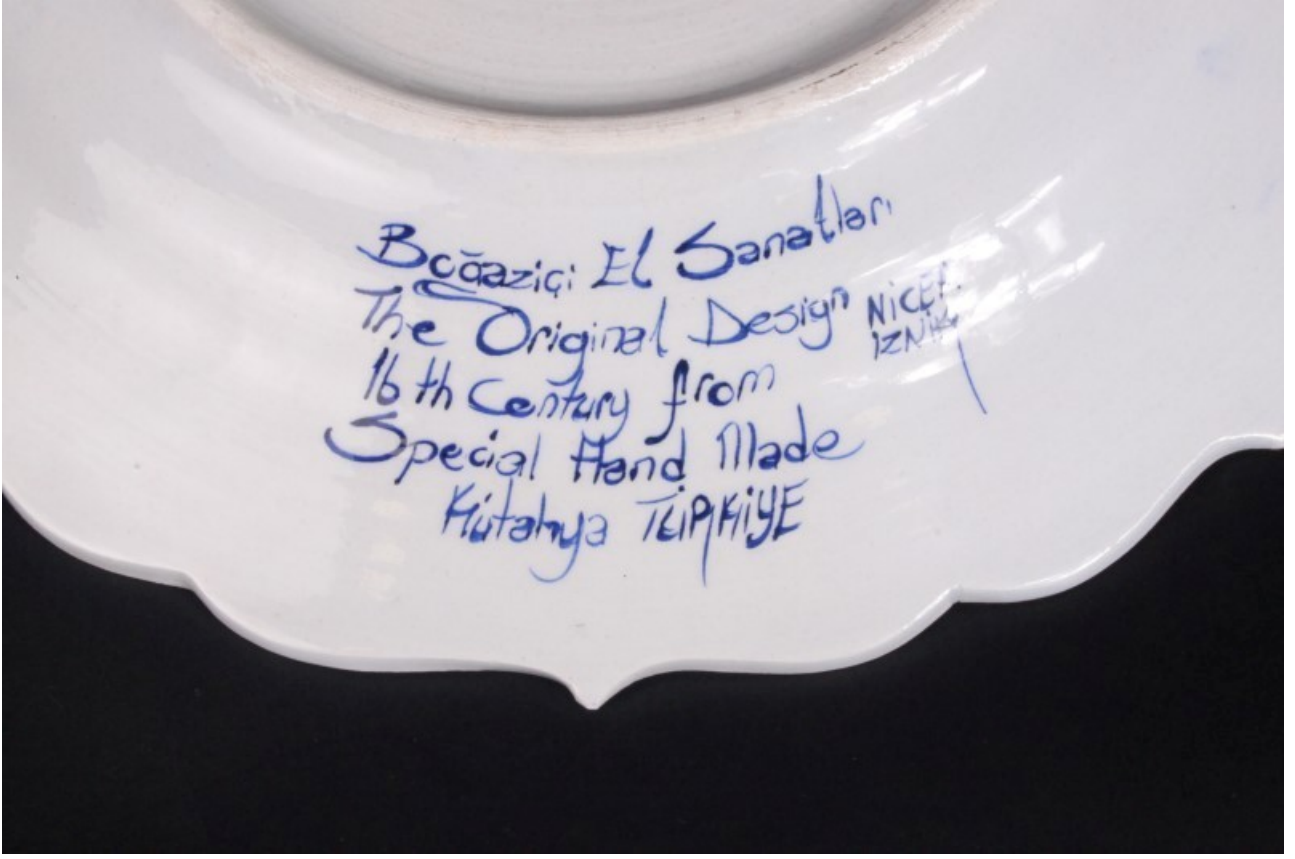 Boğaziçi El Sanatları
The Original Design NiCEA
IZNiK
16 th Century from
Special Hand Made
Kütahya TÜRKiYE